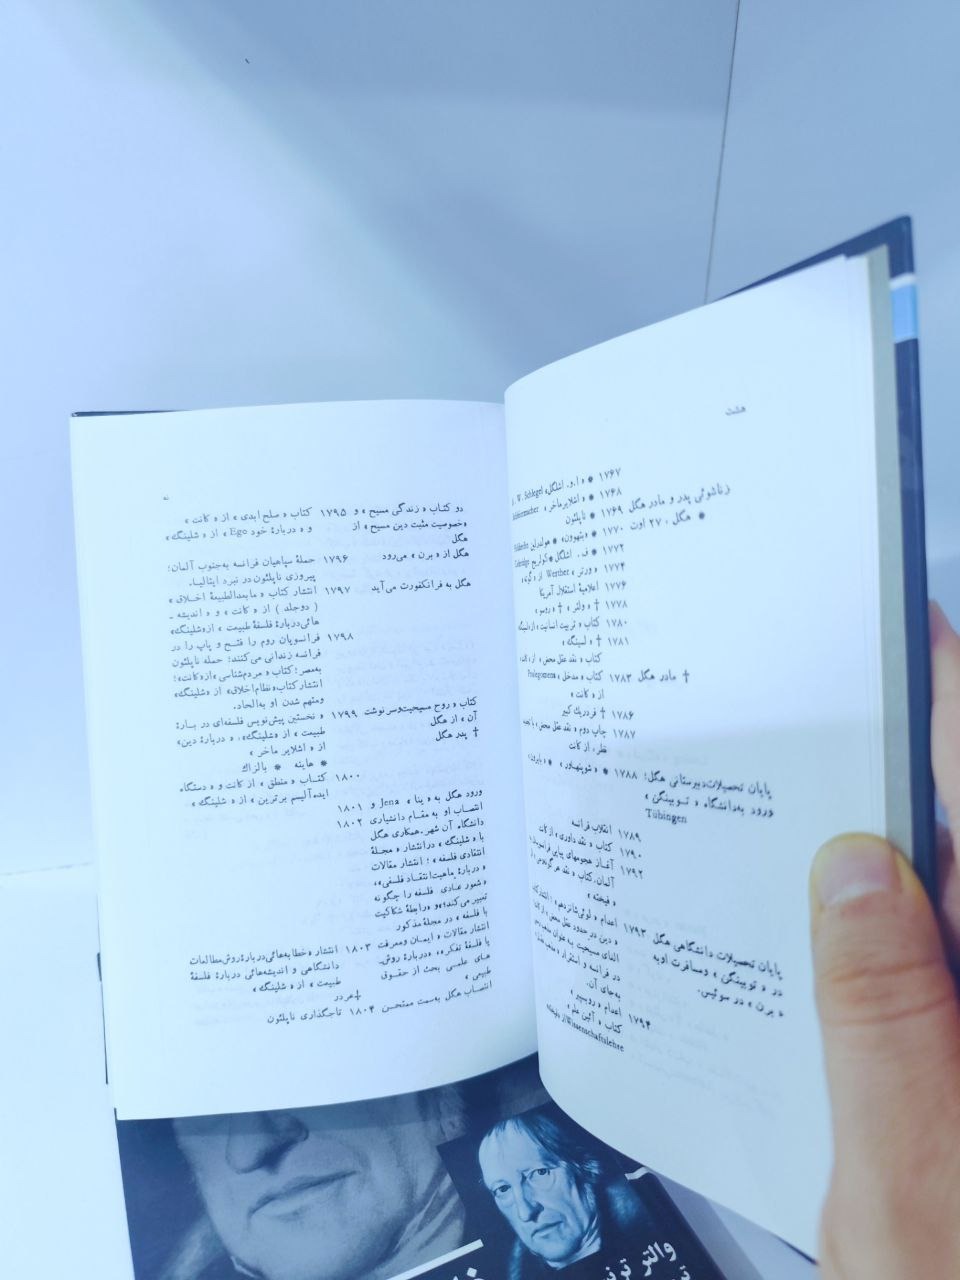 هشت
۱۷۶۷ * « ا.و. اشلگل» W. Schlegel
زناشوئی پدر و مادر هگل ۱۷۶۸ * « اشلایرماخر »
۱۷۶۹ ناپلئون
* هگل ، ۲۷ اوت ۱۷۷۰ * «بتهوون» * هولدرلین
۱۷۷۲ * ف . اشلگل * کولریج Coleridge
۱۷۷۴ « ورتر » Werther از « گوته »
۱۷۷۶ اعلامیهٔ استقلال آمریکا
۱۷۷۸ † « ولتر » † « روسو »
۱۷۸۰ کتاب « تربیت انسانیت »
۱۷۸۱ † « لسینگ »
کتاب « نقد عقل محض » از
† مادر هگل ۱۷۸۳ کتاب « مدخل » Prolegomena
از « کانت »
۱۷۸۶ † فردریك کبیر
۱۷۸۷ چاپ دوم « نقد عقل محض » با تجدید
نظر، از کانت
پایان تحصیلات دبیرستانی هگل؛ ۱۷۸۸ * « شوپنهاور » * « بایرون »
ورود به‌دانشگاه « توبینگن »
Tübingen
۱۷۸۹ انقلاب فرانسه
۱۷۹۰ کتاب « نقد داوری » از کانت
۱۷۹۲ آغاز هجومهای پیاپی فرانسویها
آلمان. کتاب « نقد هر گونه وحی »
« فیخته »
پایان تحصیلات دانشگاهی هگل ۱۷۹۳ اعدام « لوئی شانزدهم » ؛ انتشار کتاب
در « توبینگن » ومسافرت اوبه « دین در حدود عقل محض » از کانت
« برن » در سوئیس. الغای مسیحیت به عنوان مذهب رسمی
در فرانسه و استقرار « مذهب عقل »
به‌جای آن.
۱۷۹۴ اعدام « روبسپیر »
کتاب « آئین علم »
Wissenschaftslehre از «فیخته»
نه
دو کتاب « زندگی مسیح » و ۱۷۹۵ کتاب « صلح ابدی » از « کانت »
«خصوصیت مثبت دین مسیح » از و « دربارهٔ خود Ego » از « شلینگ»
هگل
هگل از « برن » می‌رود ۱۷۹۶ حملهٔ سپاهیان فرانسه به‌جنوب آلمان؛
پیروزی ناپلئون در نبرد ایتالیا.
هگل به فرانکفورت می‌آید ۱۷۹۷ انتشار کتاب « مابعدالطبیعهٔ اخلاق »
( دوجلد ) از « کانت » و « اندیشه ـ
هائی‌دربارهٔ فلسفهٔ طبیعت » از«شلینگ»
۱۷۹۸ فرانسویان روم را فتح و پاپ را در
فرانسه زندانی می‌کنند؛ حمله ناپلئون
به‌مصر؛ کتاب « مردم‌شناسی »از«کانت»؛
انتشار کتاب«نظام‌اخلاق»از «شلینگ»
ومتهم شدن او به‌الحاد.
کتاب « روح مسیحیت‌وسرنوشت ۱۷۹۹ « نخستین پیش‌نویس فلسفه‌ای در بارهٔ
آن » از هگل طبیعت » از «شلینگ»، « دربارهٔ دین»
† پدر هگل از « اشلایر ماخر »
* هاینه * بالزاك
۱۸۰۰ کتاب « منطق » از کانت و « دستگاه
ایده‌آلیسم برترین » از « شلینگ »
ورود هگل به « ینا » Jena و ۱۸۰۱
انتصاب او به مقام دانشیاری ۱۸۰۲
دانشگاه آن شهر. همکاری هگل
با « شلینگ » درانتشار « مجلهٔ
انتقادی فلسفه » ؛ انتشار مقالات
« دربارهٔ ماهیت‌انتقاد فلسفی»،
« شعور عادی فلسفه را چگونه
تعبیر می‌کند؟»و «رابطهٔ شکاکیت
با فلسفه » در مجلهٔ مذکور
انتشار مقالات « ایمان ومعرفت ۱۸۰۳ انتشار « خطابه‌هائی‌دربارهٔ‌روش‌مطالعات
یا فلسفهٔ تفکر»، «دربارهٔ روش‌ دانشگاهی « اندیشه‌هائی دربارهٔ فلسفهٔ
های علمی بحث از حقوق طبیعت » از « شلینگ »
طبیعی » † هردر
انتصاب هگل به‌سمت ممتحن ۱۸۰۴ تاجگذاری ناپلئون
والتر